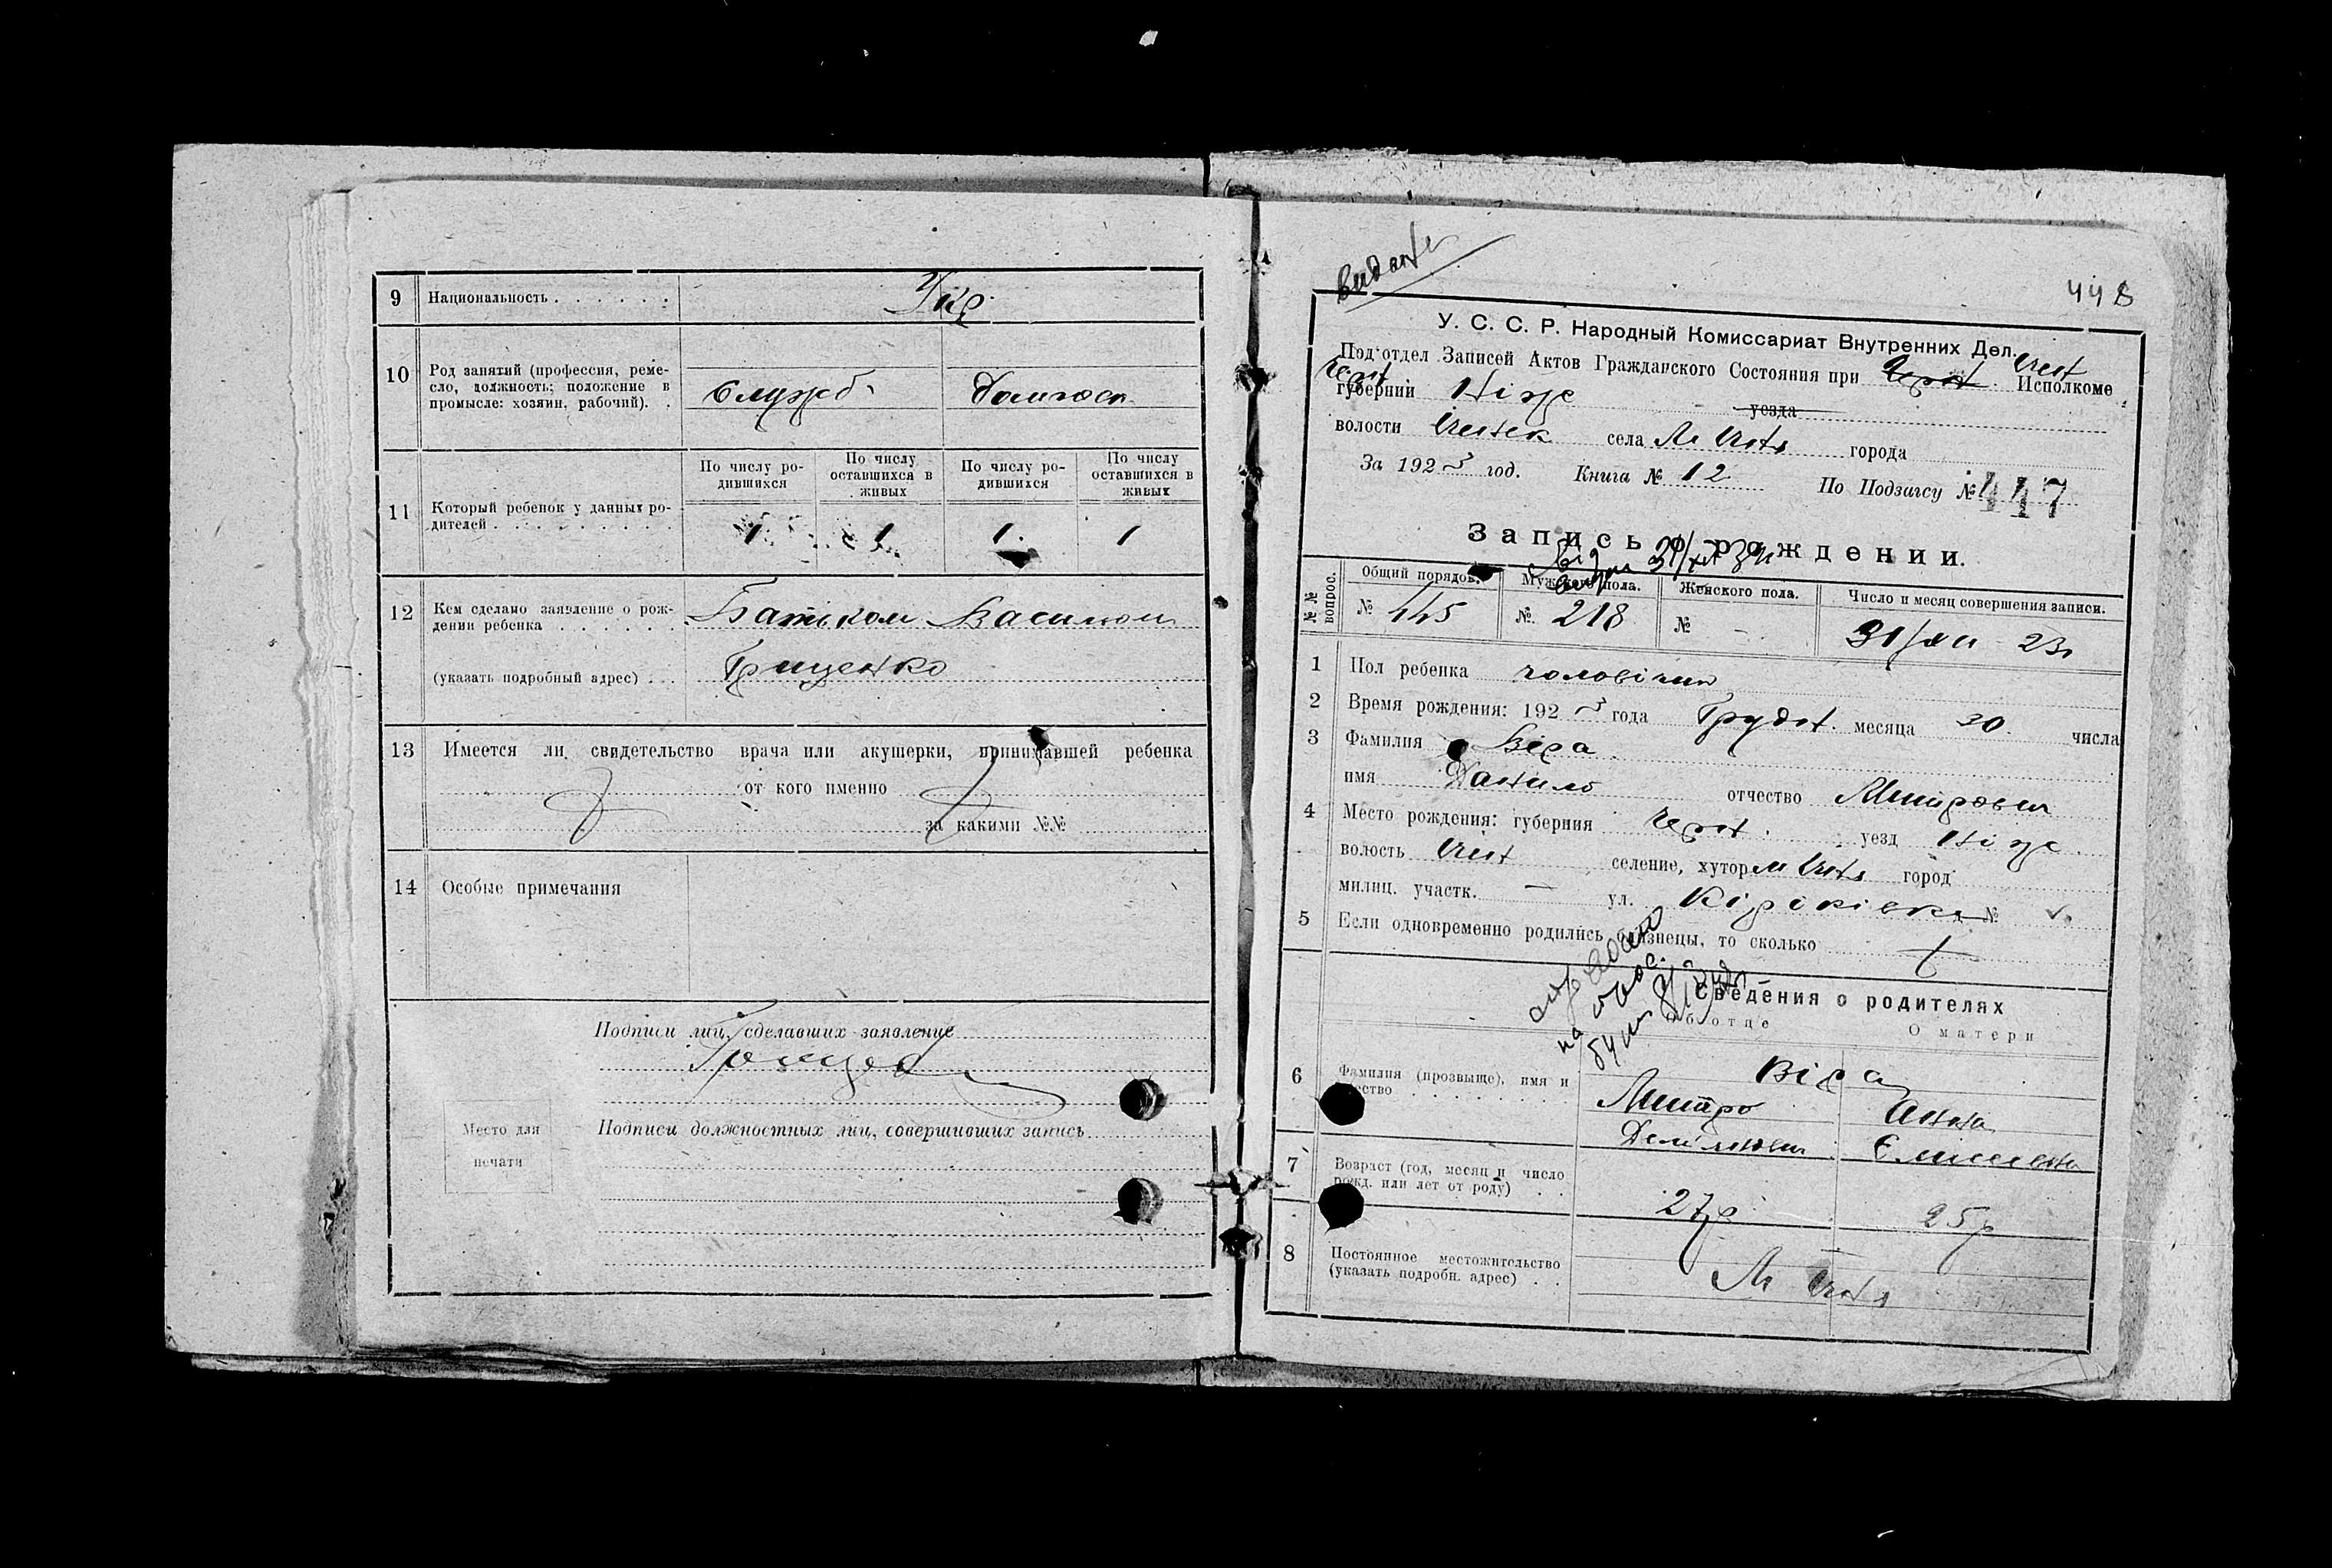 9 Национальность . . . . . . Укр.
10 Род занятий (профессия, ремесло, должность; положение в промысле: хозяин, рабочий). . Служб. Домгосп.
По числу родившихся По числу оставшихся в живых По числу родившихся По числу оставшихся в живых
11 Который ребенок у данных родителей . . . . . . . . . 1 1 1. 1
12 Кем сделано заявление о рождении ребенка . . . . . . Батьком Василем
(указать подробный адрес) . . . Грищенко
13 Имеется ли свидетельство врача или акушерки, принимавшей ребенка
от кого именно
за какими №№
14 Особые примечания
Подписи лиц, сделавших заявление
Место для печати
Подписи должностных лиц, совершивших запись
видано
448
У. С. С. Р. Народный Комиссариат Внутренних Дел.
Подотдел Записей Актов Гражданского Состояния при Исполкоме
Черн. губернии Ніж уезда
волости села города
За 1923 год. Книга № 12 По Подзагсу № 447
Запись о рождении.
№№ вопрос. Общий порядок. Мужского пола. Женского пола. Число и месяц совершения записи.
№ 445 №. 218 № - 31/XII 23
1 Пол ребенка чоловічий
2 Время рождения: 1923 года Грудн. месяца 30. числа
3 Фамилия Віра
имя Данило отчество Митрович
4 Место рождения: губерния Черн. уезд Ніж.
волость селение, хутор город
милиц. участк. — ул. №
5 Если одновременно родились близнецы, то сколько
Сведения о родителях
Об отце О матери
6 Фамилия (прозвыще), имя и отчество . . . . . . . . . Віра
Митро Анна
Демянович
7 Возраст (год, месяц и число рожд. или лет от роду) . . 27 р 25 р
8 Постоянное местожительство (указать подробн. адрес) . .